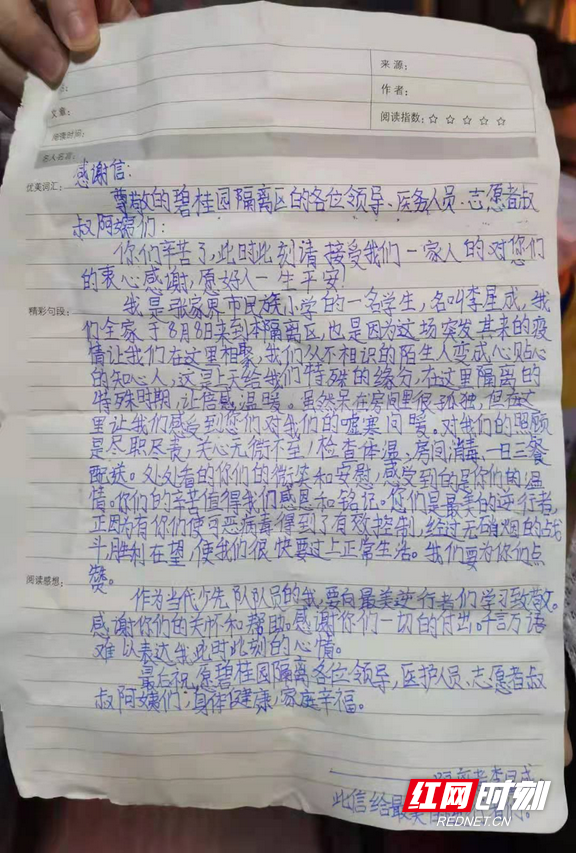 来源：
作者：
文章：
阅读指数：☆ ☆ ☆ ☆ ☆
阅读时间：
名人名言：
感谢信：
优美词汇：
尊敬的碧桂园隔离区的各位领导、医务人员、志愿者叔
叔阿姨们：
你们辛苦了，此时此刻请接受我们一家人的对您们
的衷心感谢，愿好人一生平安！
精彩句段：
我是张家界市民族小学的一名学生，名叫李星成，我
们全家于8月8日来到本隔离区，也是因为这场突发其来的疫
情让我们在这里相聚，我们从不相识的陌生人变成心贴心
的知心人，这是上天给我们特殊的缘分，在这里隔离的
特殊时期，让倍感温暖。虽然呆在房间里很孤独，但在这
里让我们感受到您们对我们的嘘寒问暖。对我们的照顾
是尽职尽责，关心无微不至！检查体温，房间消毒，一日三餐
配送。处处看的你们的微笑和安慰，感受到的是你们的温
情。你们的辛苦值得我们感恩和铭记。您们是最美的逆行者，
正因为有你们使可恶病毒得到了有效控制，经过无硝烟的战
斗胜利在望，使我们很快要过上正常生活。我们要为你们点
赞。
阅读感想：
作为当代少先队队员的我，要向最美逆行者们学习致敬。
感谢你们的关怀和帮助。感谢你们一切的付出。千言万语
难以表达我此时此刻的心情。
最后祝愿碧桂园隔离各位领导，医护人员、志愿者叔
叔阿姨们，身体健康，家庭幸福。
此信给最美
红网时刻
REDNET.CN